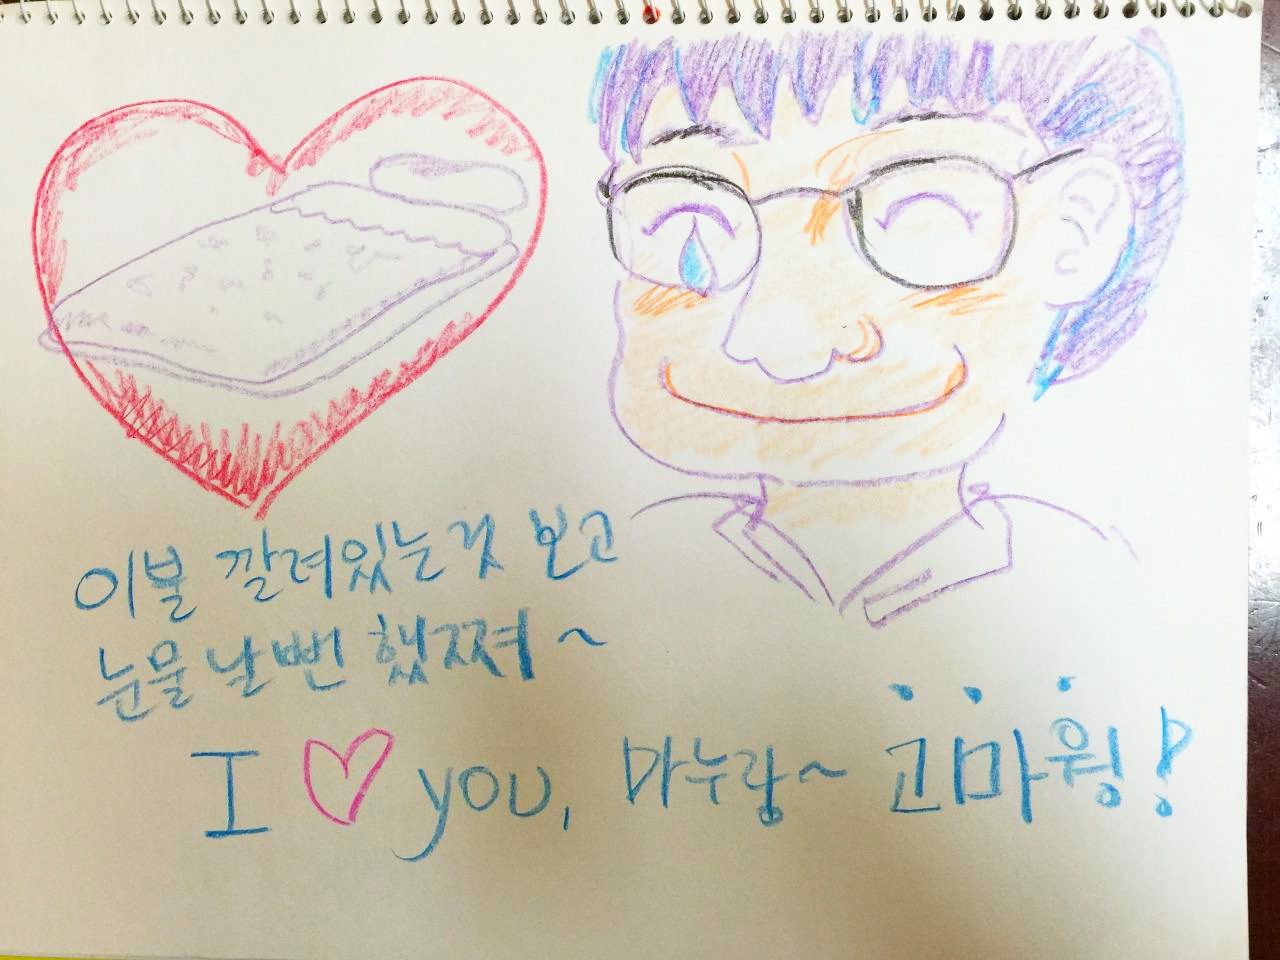 이불 깔려있는것 보고
눈물 날뻔 했쪄~
I ♡ you, 마누랑~ 고마웡!